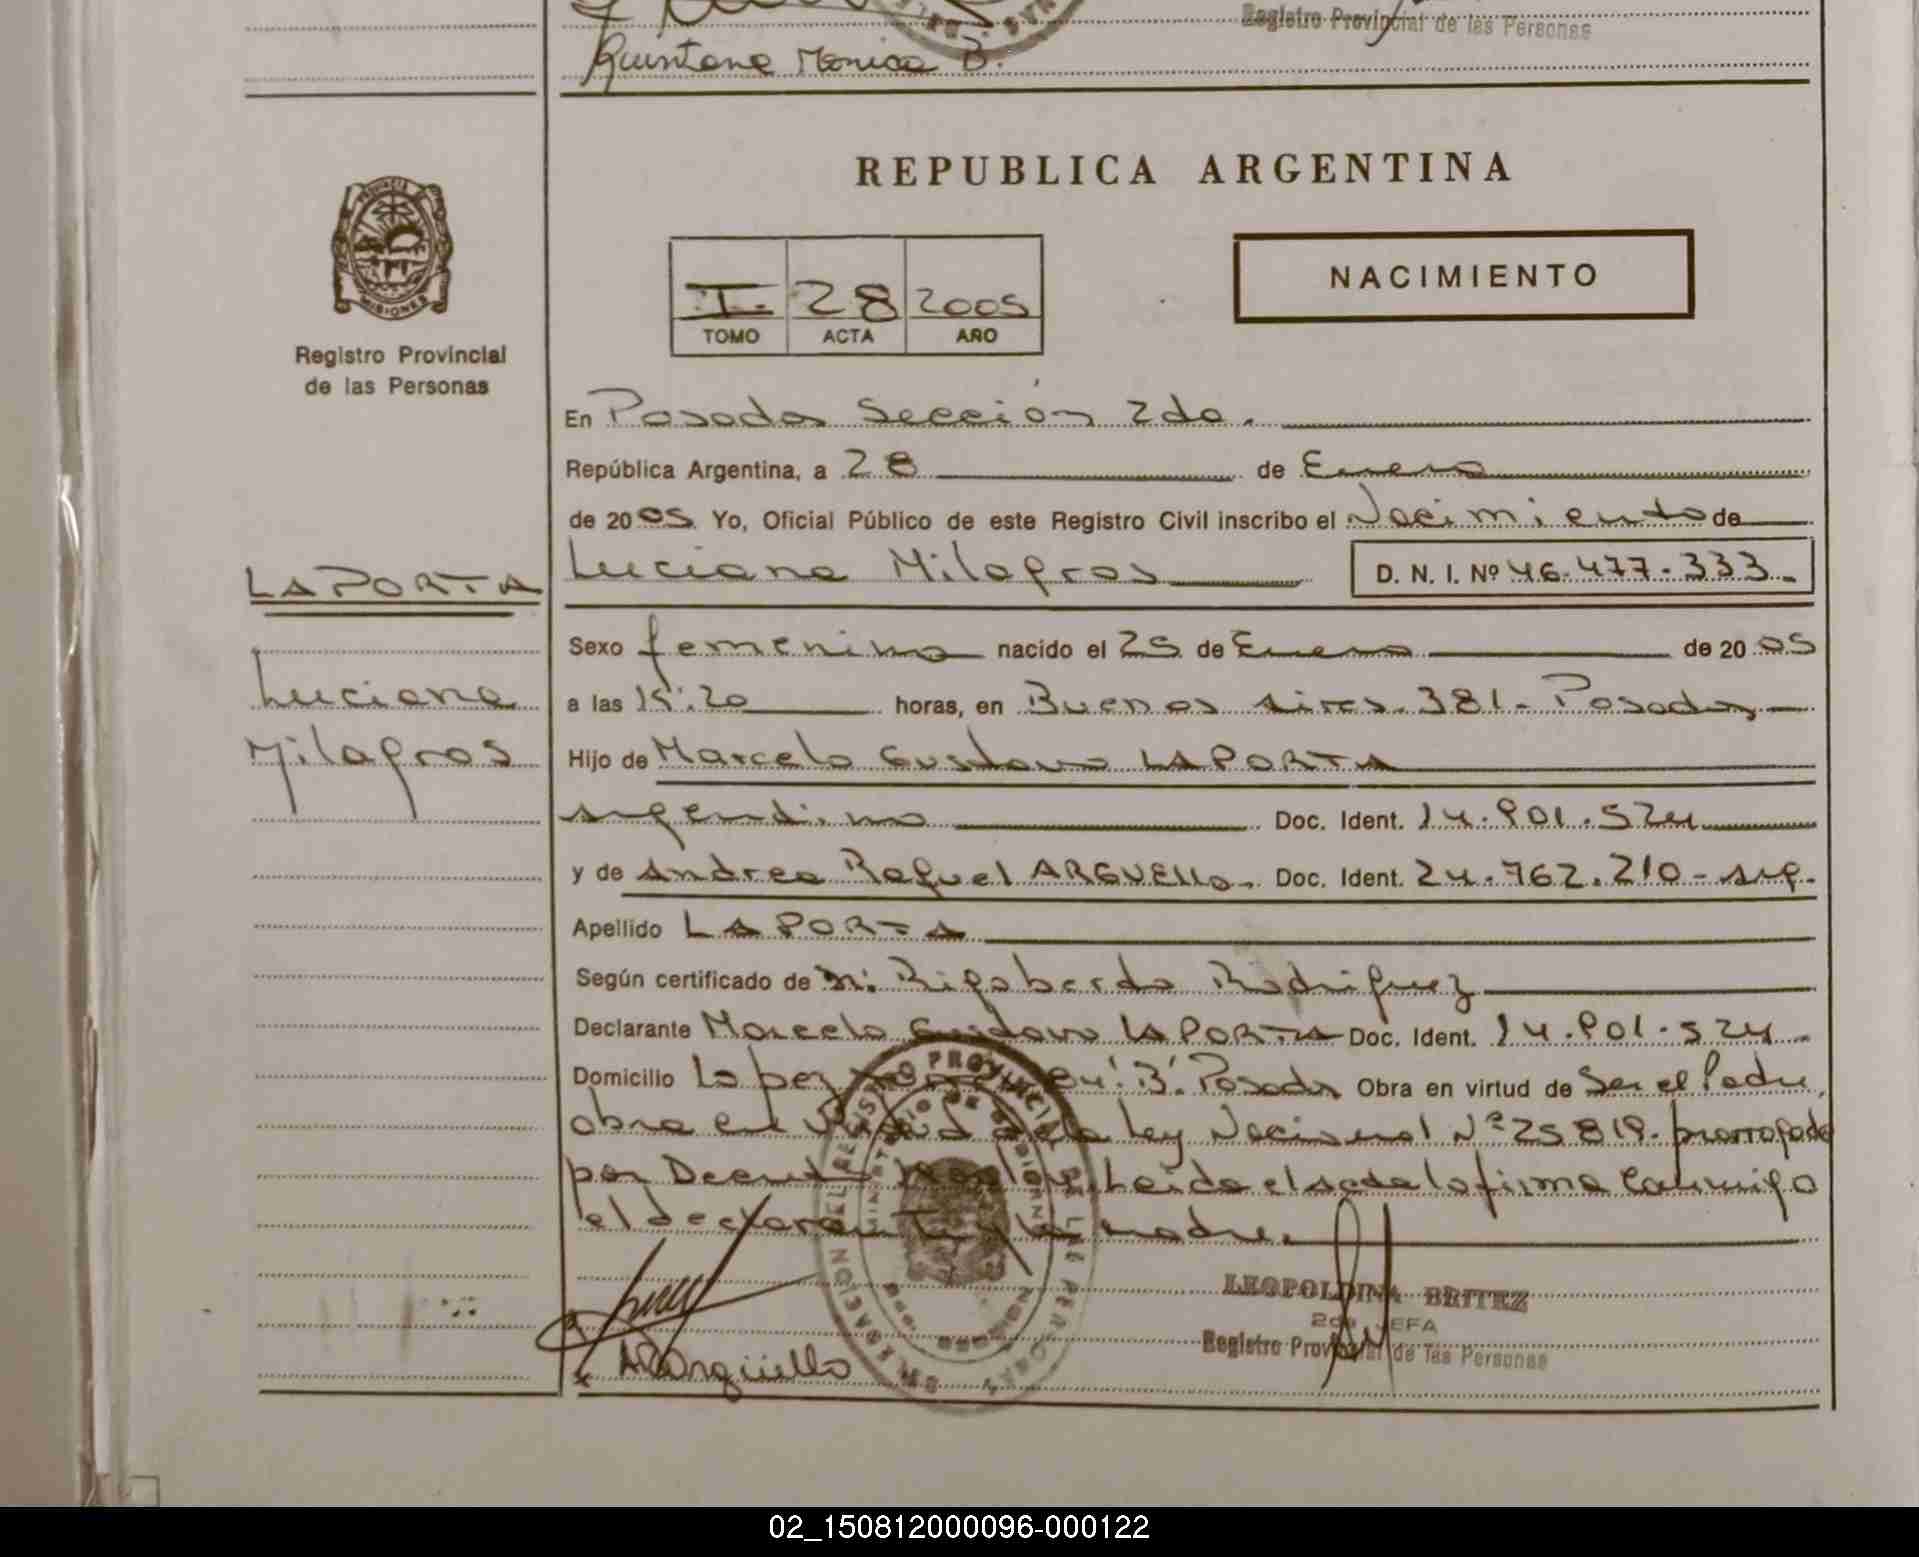 Registro Provincial de las Personas
Quintana Monica B.
REPUBLICA ARGENTINA
PROVINCIA
MISIONES
Registro Provincial
de las Personas
NACIMIENTO
I 28 2005
TOMO ACTA AÑO
En Posadas Sección 2da.
República Argentina, a 28 de Enero
de 2005 Yo, Oficial Público de este Registro Civil inscribo el Nacimiento de
LAPORTA
Luciana Milagros D. N. I. Nº 46.477.333
Sexo femenino nacido el 25 de Enero de 2005
Luciana
a las 15:20 horas, en Buenos Aires 381- Posadas
Milagros
Hijo de Marcelo Gustavo LAPORTA
argentino Doc. Ident. 14.901.524
y de Andrea Raquel ARGUELLO. Doc. Ident. 24.762.210 - arg.
Apellido LAPORTA
Según certificado de Rigoberto Rodriguez
Declarante Marcelo Gustavo LAPORTA Doc. Ident. 14.901.524
Domicilio Lopez "B". Posadas Obra en virtud de Ser el Padre,
obra en virtud de la Ley Nacional Nº 25819. prorrogada
por Decreto Leida el acta la firma Conmigo
el declarante y la madre.
LEOPOLDINA BRITEZ
2da JEFA
Registro Provincial de las Personas
ARArgüello
02_150812000096-000122